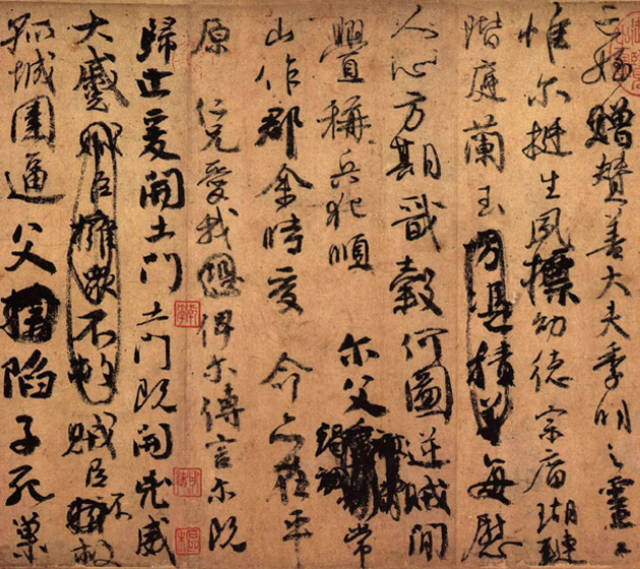 亡姪贈贊善大夫季明之靈曰
惟爾挺生夙標幼德宗廟瑚璉
階庭蘭玉方憑積善每慰
人心方期戩穀何圖逆賊閒
釁稱兵犯順爾父竭誠常
山作郡余時受命亦在平
原仁兄愛我恐俾爾傳言爾既
歸止爰開土門土門既開凶威
大蹙賊臣擁衆不救賊臣不救
孤城圍逼父陷子死巢